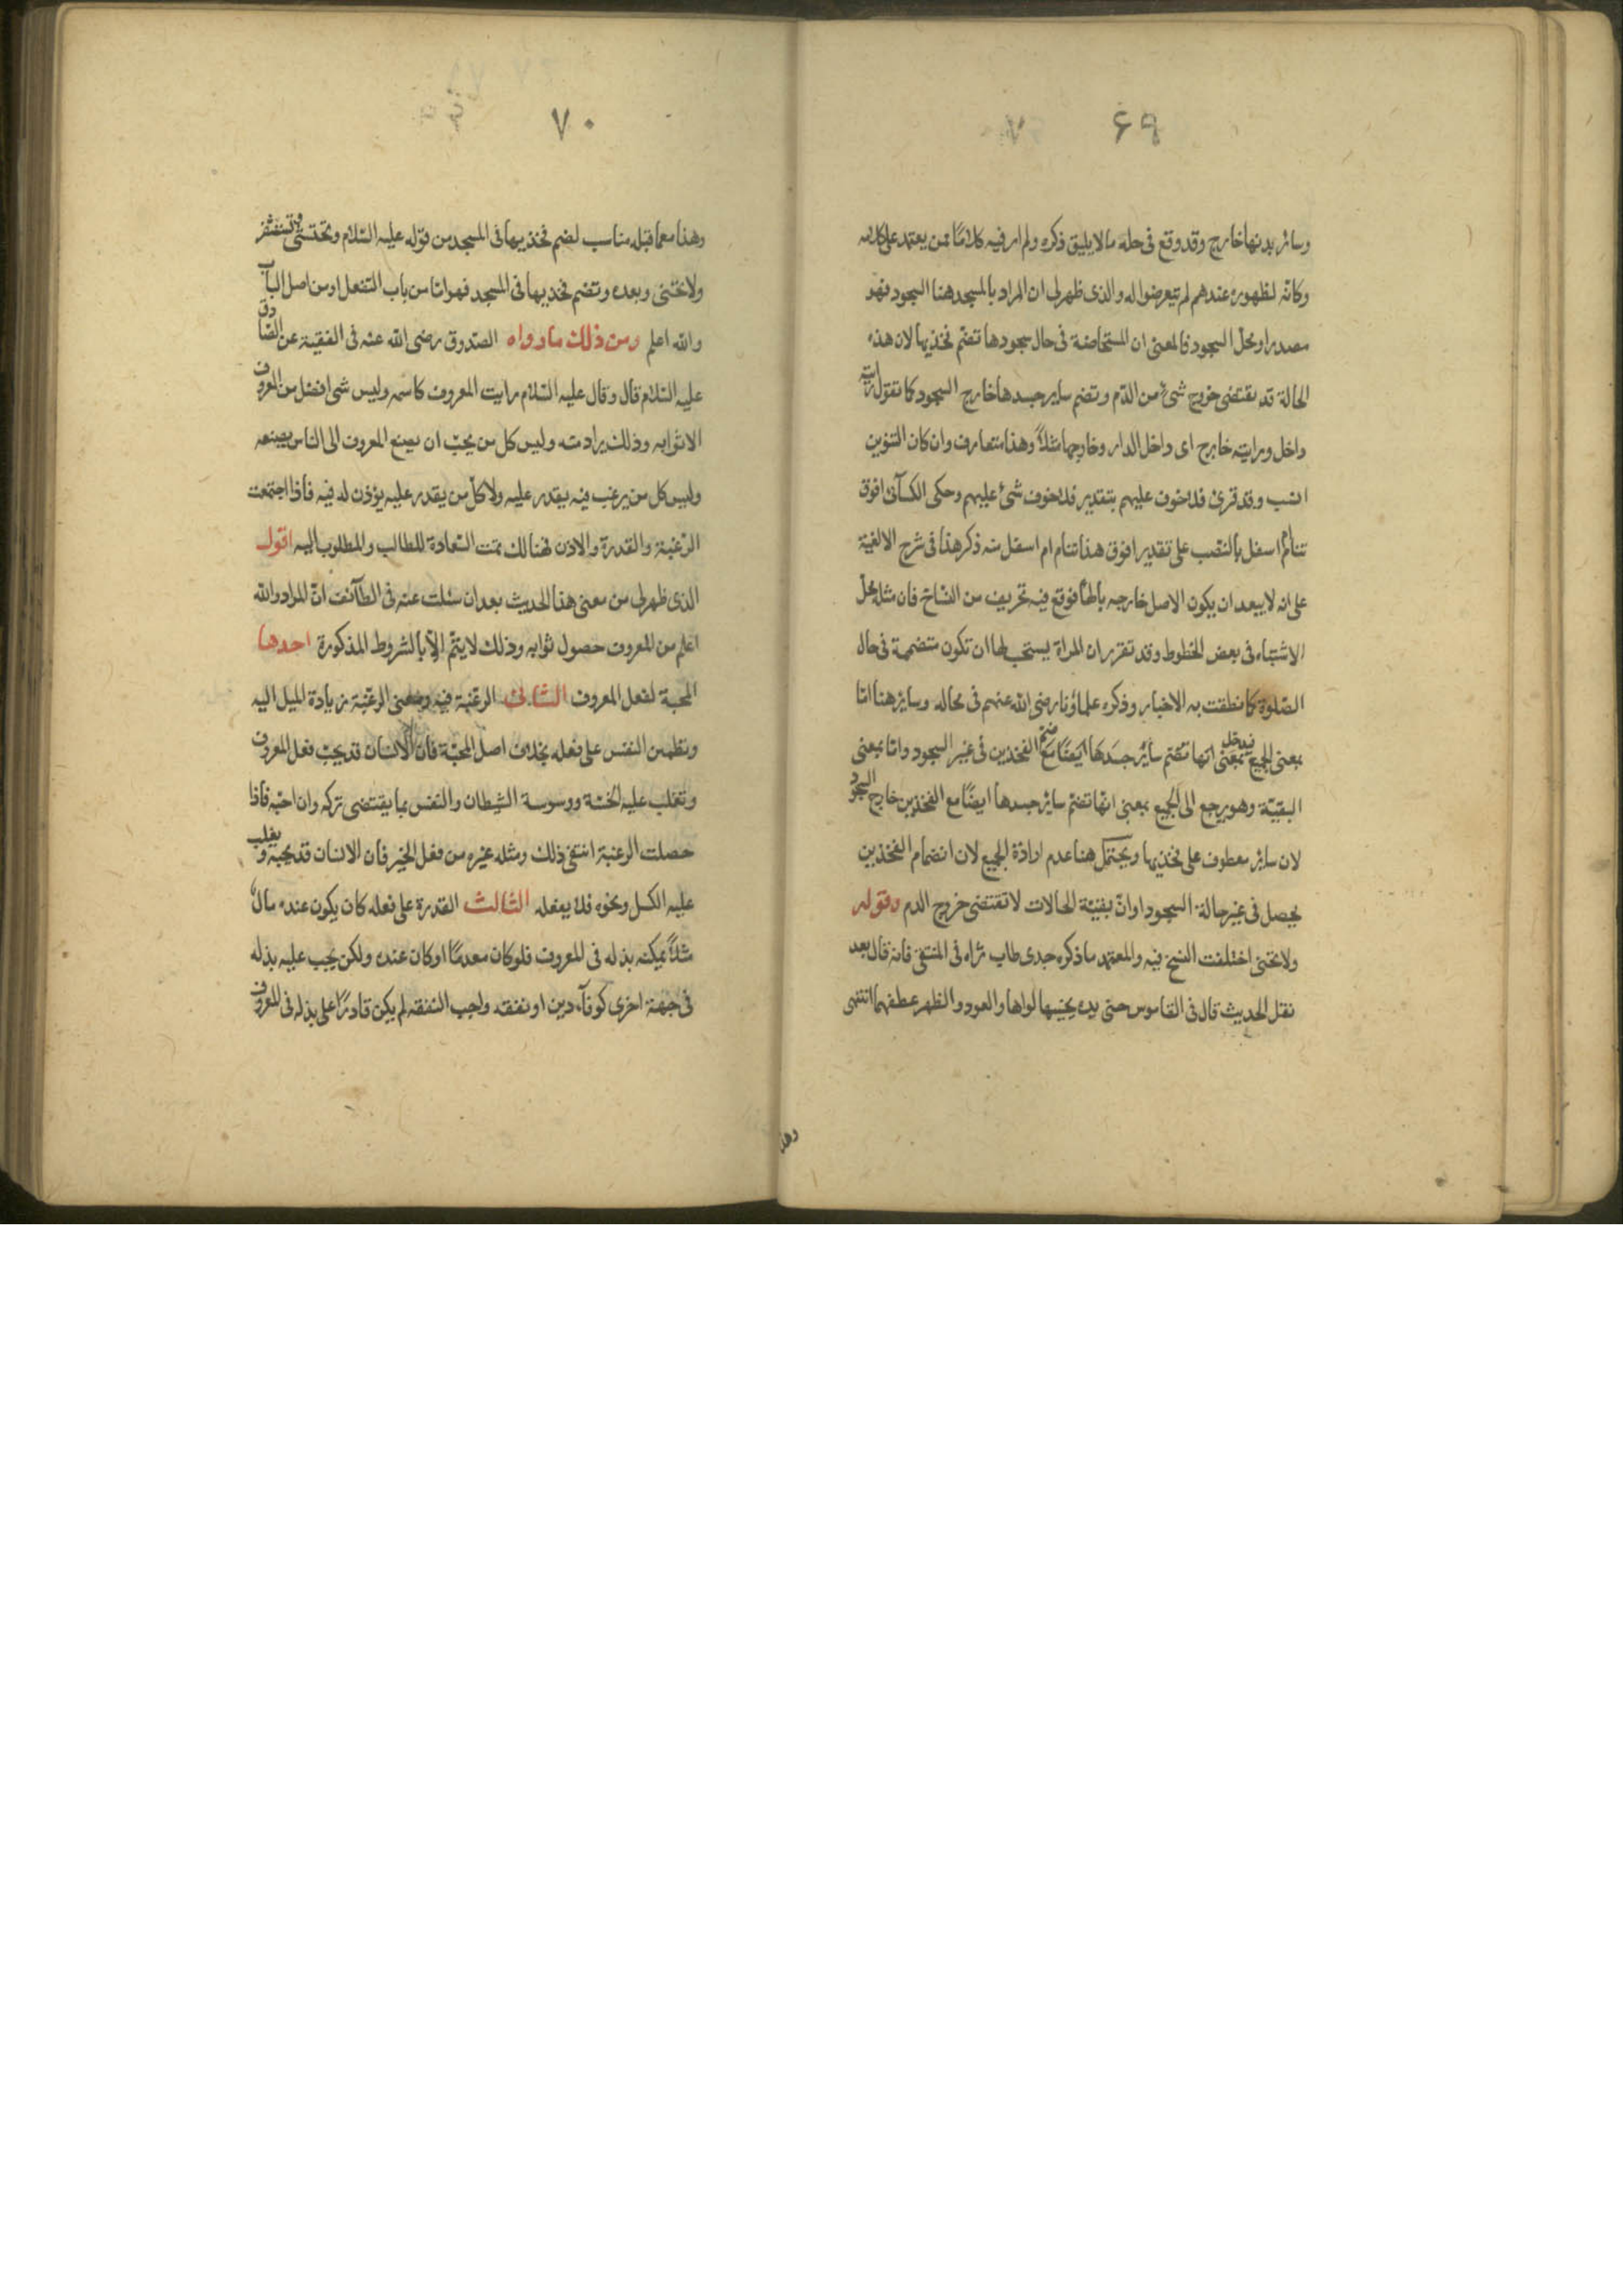 ۶۹
وسائر بدنها خارج وقد وقع فى حله ما لا يليق ذكره ولم ار فيه كلامًا ممن يعتمد على كلامه
وكانّه لظهوره عندهم لم يتعرضوا له والذى ظهر لى ان المراد بالمسجد هنا السجود فهو
مصدر او محل السجود فالمعنى ان المستحاضة فى حال سجودها تضم فخذيها لان هذه
الحالة قد يقتضى خروج شىء من الدّم وتضم ساير جسدها خارج السجود كما تقول رايته
داخل ورايته خارج اى داخل الدار وخارجها مثلاً وهذا متعارف وان كان التنوين
انسب وقد قرئ فلا خوف عليهم بتقدير فلا خوف شىء عليهم وحكى الكسآئى افوق
تنام ام اسفل بالنصب على تقدير افوق هذا تنام ام اسفل منه ذكر هذا فى شرح الالفية
على انه لا يبعد ان يكون الاصل خارجه بالهآ فوقع فيه تحريف من النسّاخ فان مثله محلّ
الاشتباه فى بعض الخطوط وقد تقرر ان المراة يستحب لها ان تكون متضممة فى حال
الصّلوة كما نطقت به الاخبار وذكره علماؤنا رضى الله عنهم فى محاله وساير هنا امّا
بمعنى الجميع فيدخل بمعنى انها تضم سائر جسدها ايضًا مع ضم الفخذين فى غير السجود وامّا بمعنى
البقيّة وهو يرجع الى الجميع بمعنى انّها تضم سائر جسدها ايضًا مع الفخذين خارج السجود
لان سائر معطوف على فخذيها ويحتمل هنا عدم ارادة الجميع لان انضمام الفخذين
يحصل فى غير حالة السجود او انّ بقيّة الحالات لا تقتضى خروج الدم وقوله
ولا تحنى اختلفت النسخ فيه والمعتمد ما ذكره جدى طاب ثراه فى المنتقى فانه قال بعد
نقل الحديث قال فى القاموس حنى يده يحنيها لواها والعود والظهر عطفهما انتهى
وهذا
۷۰
وهذا مع ما قبله مناسب لضم فخذيها فى المسجد من قوله عليه السّلام وتحتشى وتستثفر
ولا تحنى وبعده وتضم فخذيها فى المسجد فهو اما من باب التفعل او من اصل الباب
والله اعلم ومن ذلك ما رواه الصّدوق رضى الله عنه فى الفقيه عن الصّادق
عليه السّلام قال وقال عليه السّلام رايت المعروف كاسمه وليس شى افضل من المعروف
الا ثوابه وذلك يراد منه وليس كل من يحبّ ان يصنع المعروف الى الناس يصنعه
وليس كل من يرغب فيه يقدر عليه ولا كلّ من يقدر عليه يؤذن له فيه فاذا اجتمعت
الرّغبة والقدرة والاذن فهنالك تمت السّعادة للطالب والمطلوب اليه اقول
الذى ظهر لى من معنى هذا الحديث بعد ان سئلت عنه فى الطآئف انّ المراد والله
اعلم من المعروف حصول ثوابه وذلك لا يتمّ الّا بالشروط المذكورة احدها
المحبة لفعل المعروف الثانى الرغبة فيه ومعنى الرغبة زيادة الميل اليه
وتطمين النفس على فعله بخلاف اصل المحبّة فان الانسان قد يحبّ فعل المعروف
وتغلب عليه الخسّة ووسوسة الشيطان والنفس بما يقتضى تركه وان احبّه فاذا
حصلت الرغبة انتفى ذلك ومثله غيره من فعل الخير فان الانسان قد يحبه ويغلب
عليه الكسل ونحوه فلا يفعله الثالث القدرة على فعله كان يكون عنده مال
مثلاً يمكنه بذله فى المعروف فلو كان معدمًا او كان عنده ولكن يجب عليه بذله
فى جهة اخرى كوفآء دين او نفقه واجب النفقه لم يكن قادرًا على بذله فى المعروف